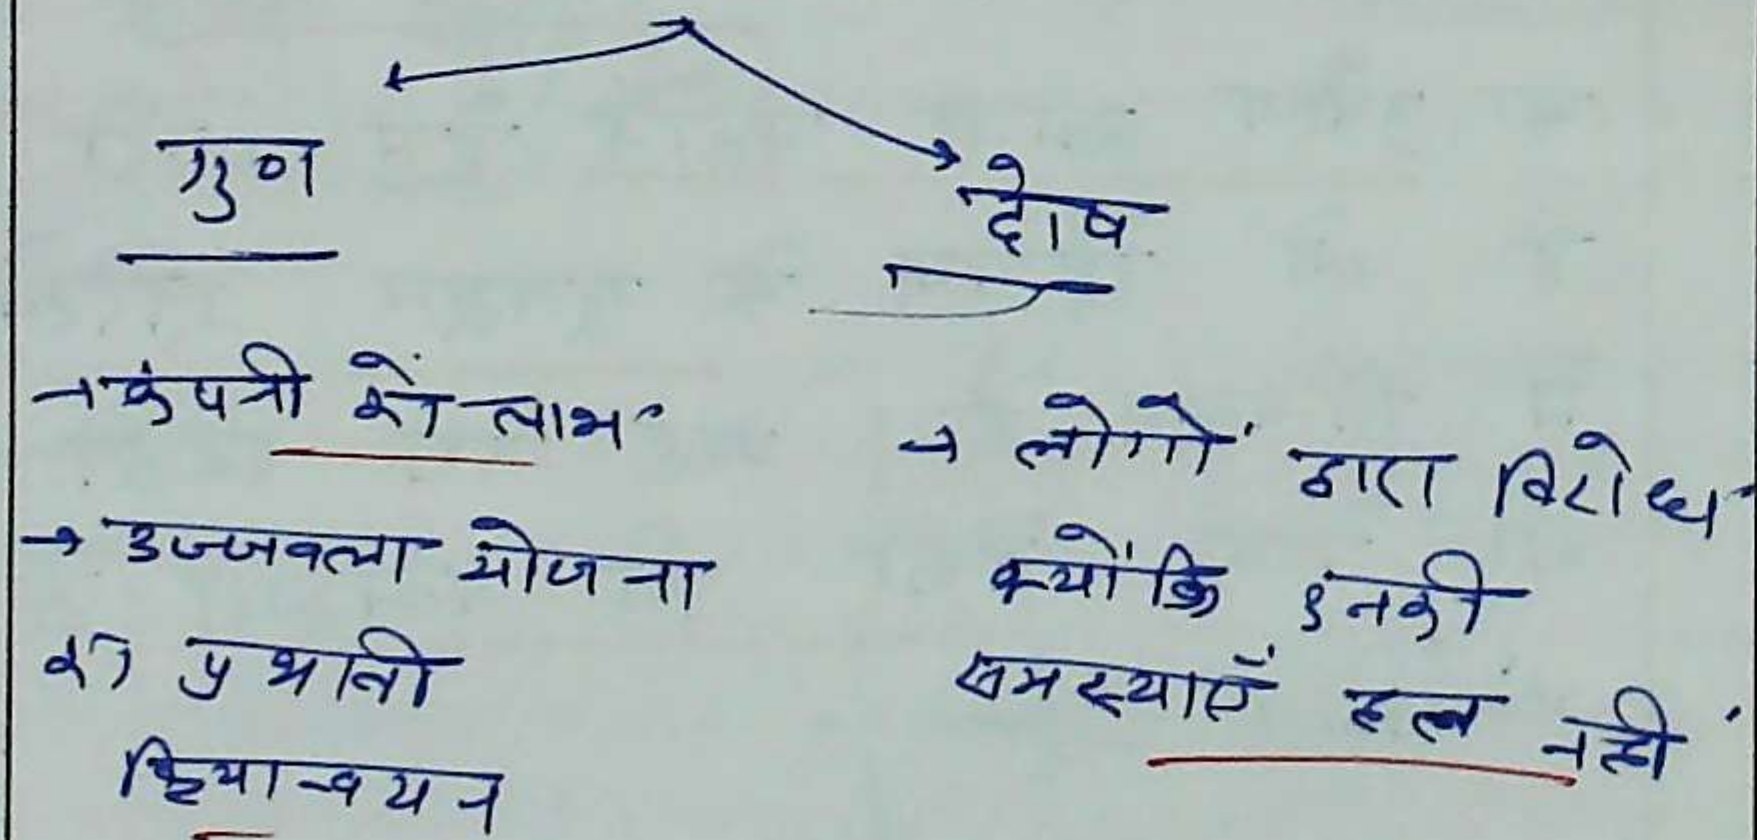 गुण
दोष
→ कंपनी को लाभ
→ उज्जवला योजना
का प्रभावी
क्रियान्वयन
→ लोगों द्वारा विरोध
क्योंकि इनकी
समस्याएँ हल नहीं